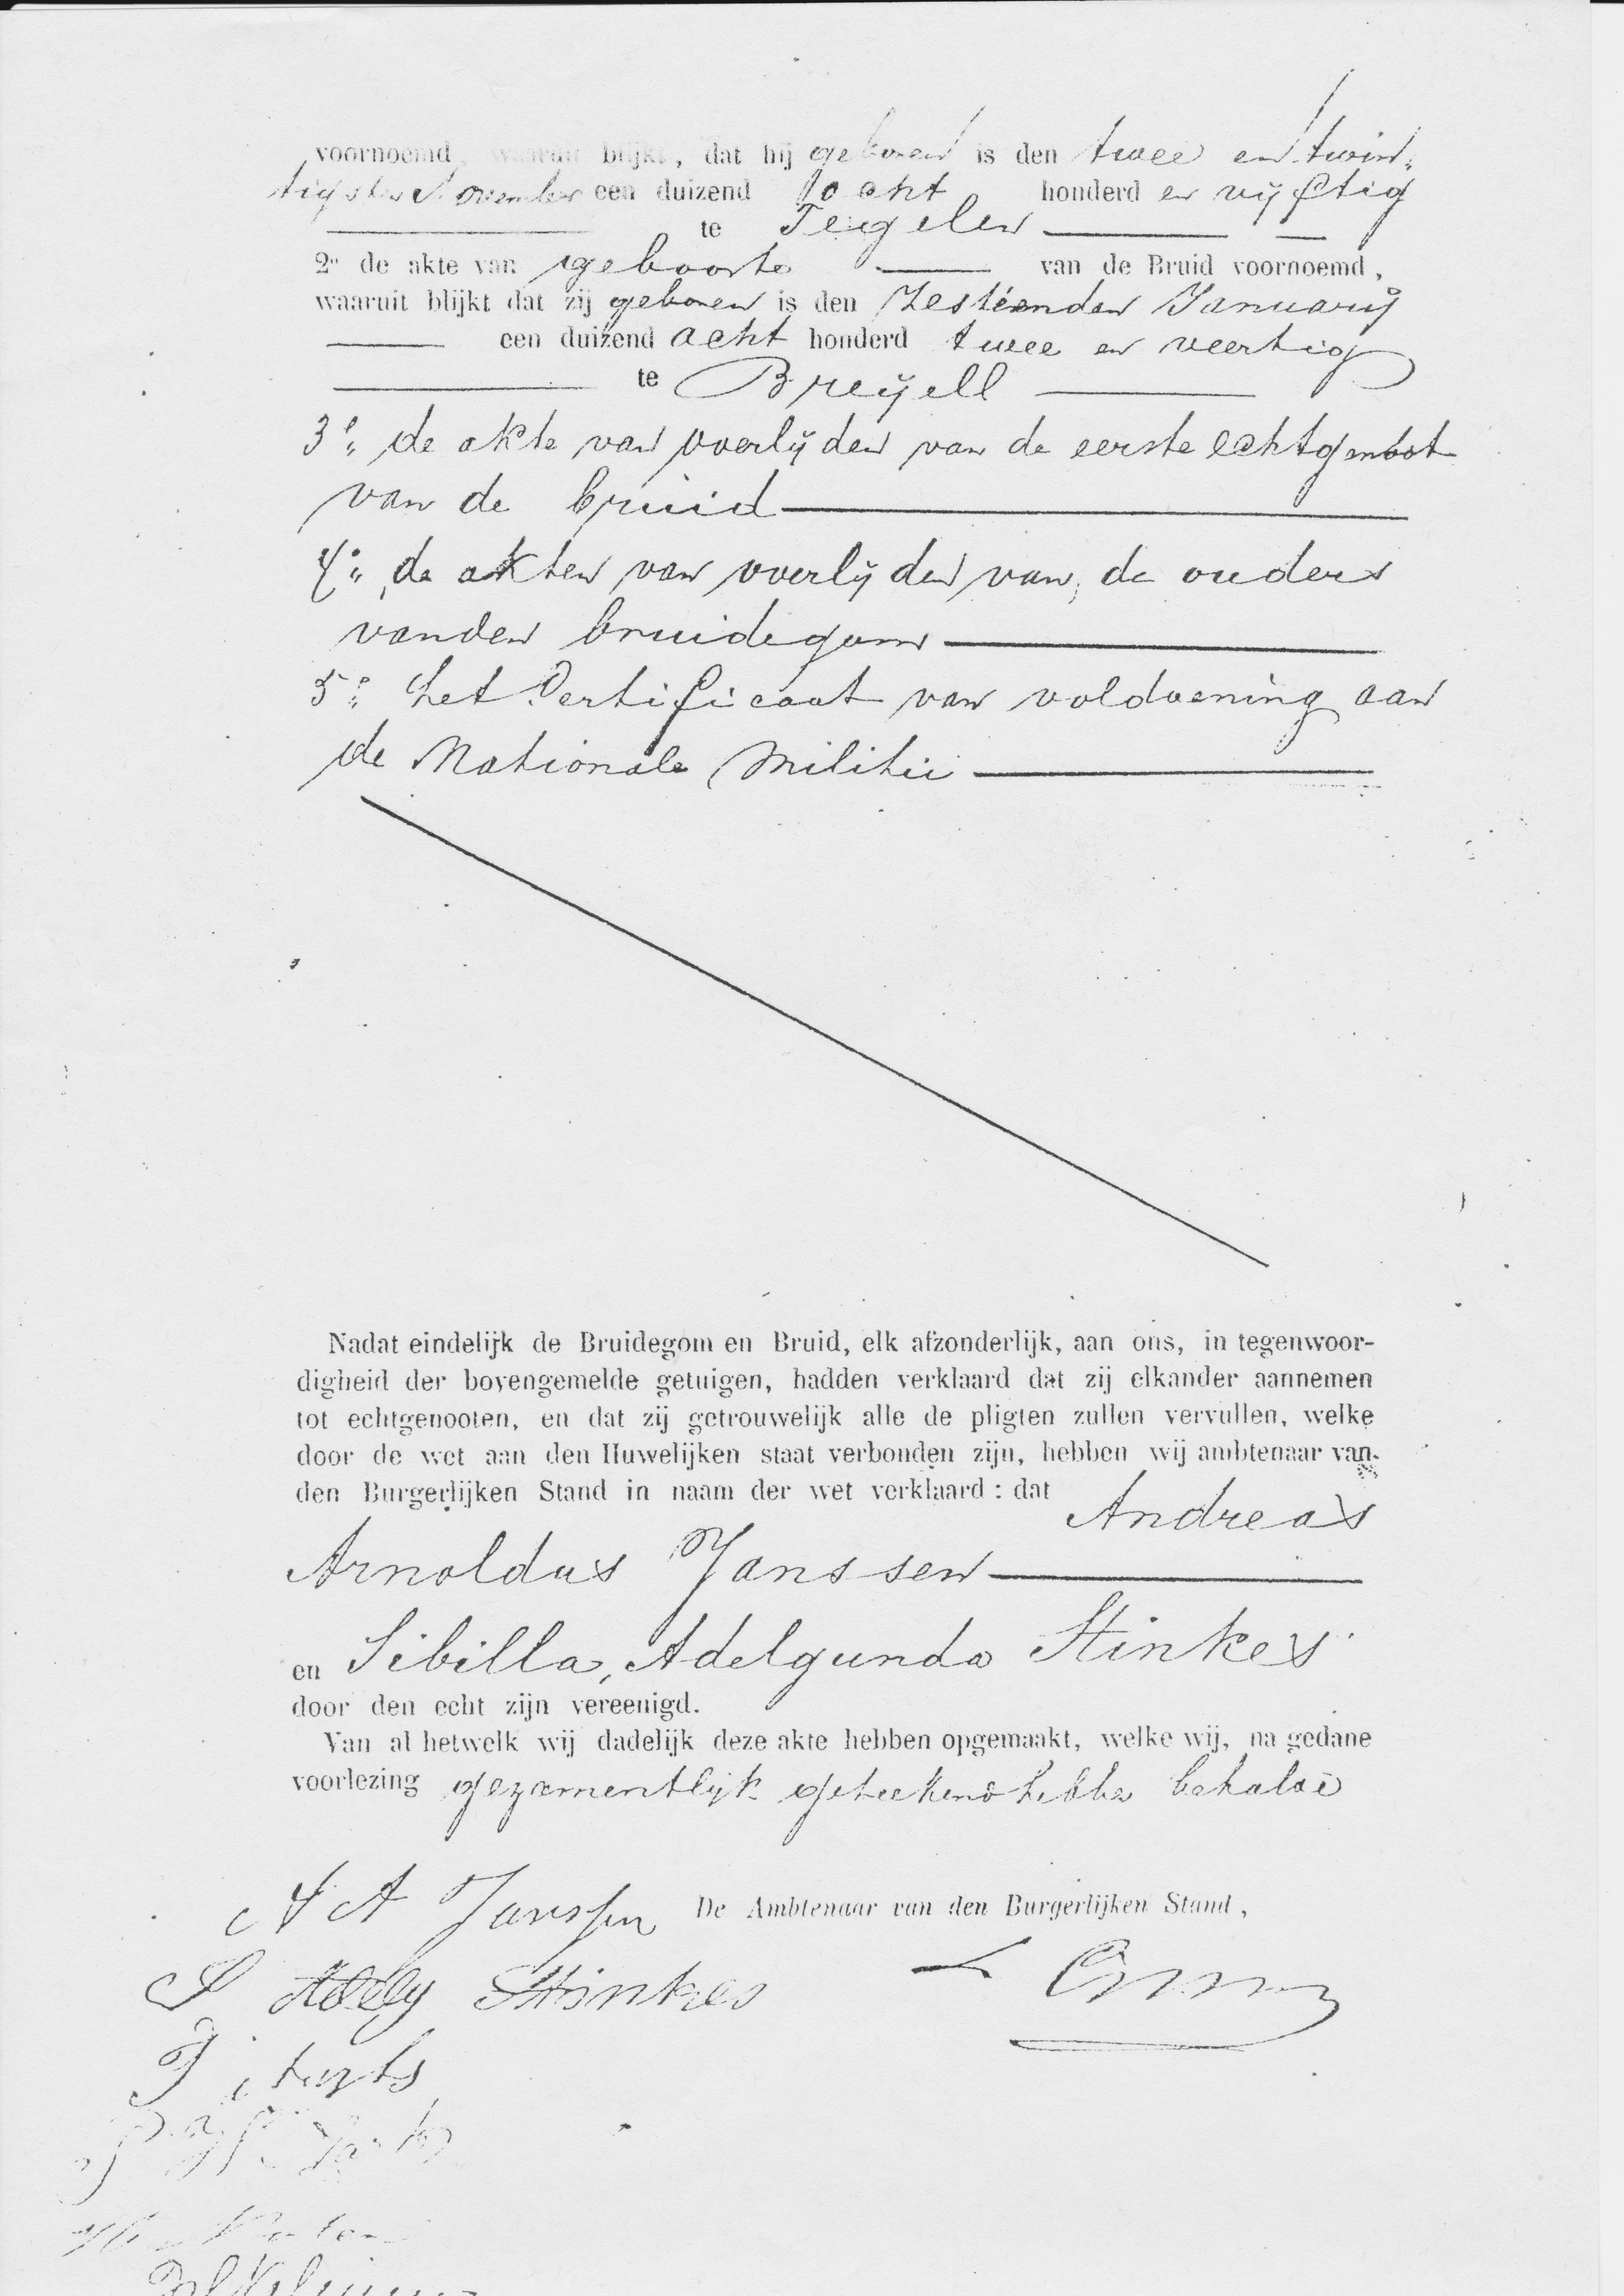 voornoemd, waaruit blijkt, dat hij geboren is den twee en twin-
tigsten November een duizend acht honderd en vijftig
te Tegelen
2° de akte van geboorte van de Bruid voornoemd,
waaruit blijkt dat zij geboren is den Zestienden Januarij
een duizend acht honderd twee en veertig
te Breyell
3° de akte van overlijden van de eerste echtgenoot
van de bruid
4° de akten van overlijden van de ouders
van den bruidegom
5° het Certificaat van voldoening aan
de Nationale Militie
Nadat eindelijk de Bruidegom en Bruid, elk afzonderlijk, aan ons, in tegenwoor-
digheid der bovengemelde getuigen, hadden verklaard dat zij elkander aannemen
tot echtgenooten, en dat zij getrouwelijk alle de pligten zullen vervullen, welke
door de wet aan den Huwelijken staat verbonden zijn, hebben wij ambtenaar van
den Burgerlijken Stand in naam der wet verklaard : dat Andreas
Arnoldus Janssen
en Sibilla, Adelgunda Stinkes
door den echt zijn vereenigd.
Van al hetwelk wij dadelijk deze akte hebben opgemaakt, welke wij, na gedane
voorlezing gezamentlijk geteekend hebben
A A Janssen De Ambtenaar van den Burgerlijken Stand,
S Stinkes